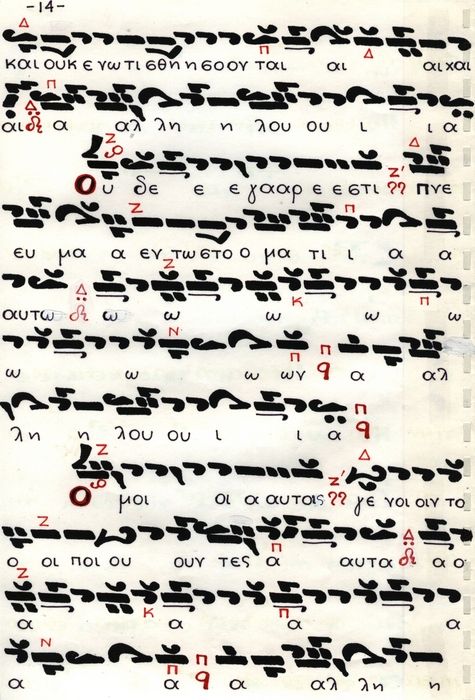 -14-
και ουκ ε νω τι σθη η σο ον ται αι αι χαι
αι α αλ λη η λου ου ι ι α
Ου δε ε ε γα αρ ε ε στι πνε
ευ μα α εν τω στο ο μα τι ι α α
αυτω ω ω ω ω ω
ω ω ω ων α αλ
λη η λου ου ι ι α
Ο μοι οι α αυτοις γε νοι οιν το
ο οι ποι ου ουν τες α αυτα α α ο
α α α
α α α αλ λη η